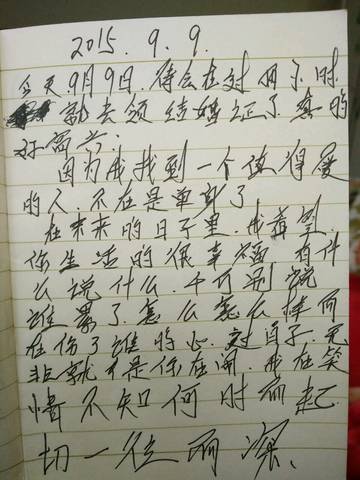 2015.9.9.
今天9月9日.待会在过两个时
就去领结婚证了真的
好高兴.
因为我找到一个值得爱
的人.不在是单身了
在未来的日子里.我希望
你生活的很幸福.有什
么说什么.千万别说
谁累了.怎么怎么样而
在伤了谁的心.过日子.无
非就是你在闹.我在笑
情不知何时而起
切一往而深.